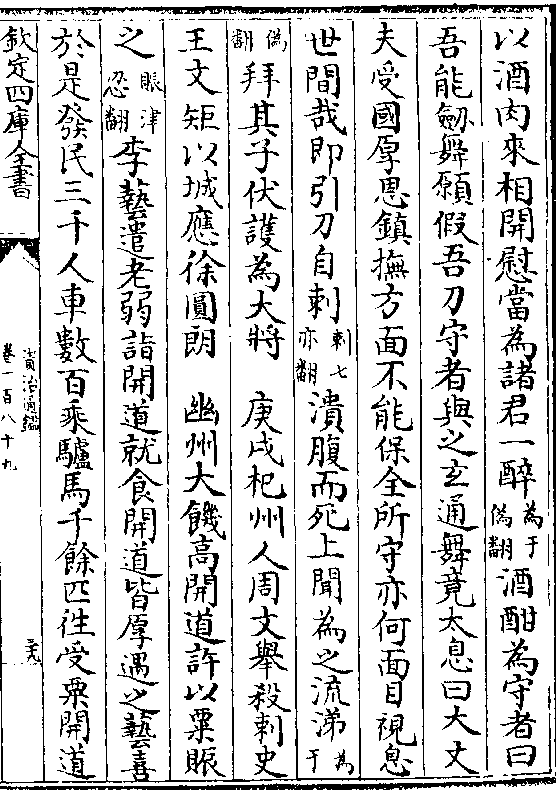 以酒肉來相開慰當為諸君一醉為于偽翻酒酣為守者曰
吾能劒舞願假吾刀守者與之玄通舞竟太息曰大丈
夫受國厚恩鎮撫方面不能保全所守亦何面目視息
世間哉即引刀自刺刺七亦翻潰腹而死上聞為之流涕為于
偽翻拜其子伏護為大將　庚戌杞州人周文舉殺刺史
王文矩以城應徐圓朗　幽州大饑高開道許以粟賑
之賑津忍翻李藝遣老弱詣開道就食開道皆厚遇之藝喜
於是發民三千人車數百乘驢馬千餘匹往受粟開道
欽定四庫全書
資治通鑑
卷一百八十九
二九